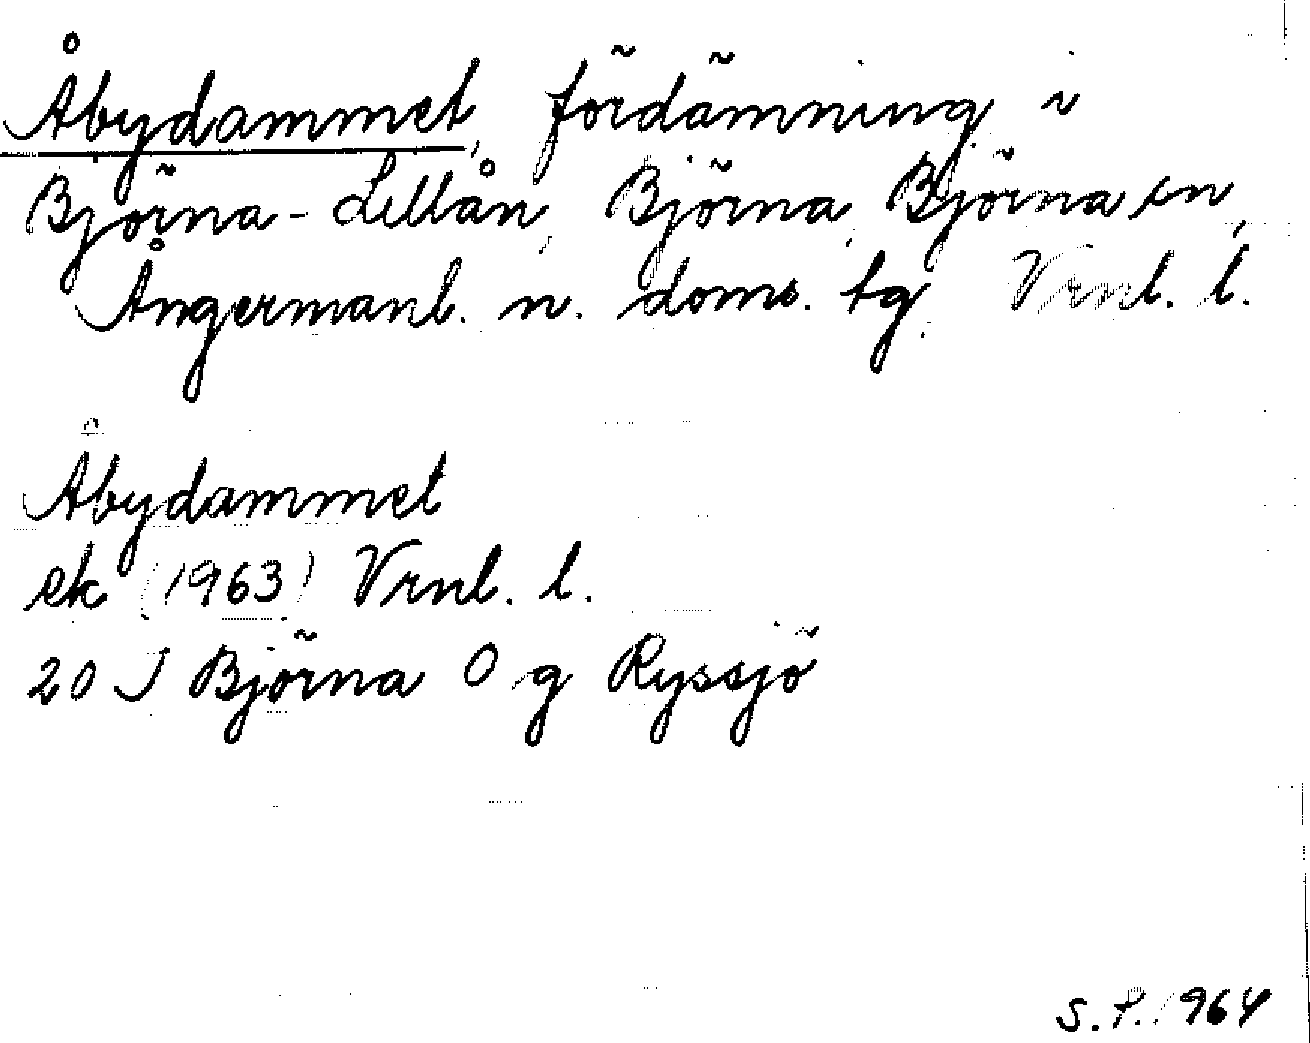 Åbydammet, fördämning i
Björna-Lillån, Björna, Björna sn,
Ångermanl. n. doms. tg, Vrnl. l.
Åbydammet
ek (1963) Vrnl. l.
20 J Björna O g Ryssjö
S.P. 1964